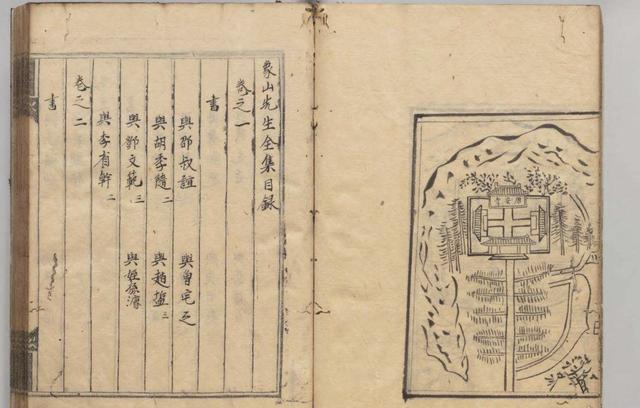 象山先生全集目錄
卷之一
書
與邵叔誼 與曾宅之
與胡季隨二 與趙監三
與鄧文範三 與姪孫濬
與李省幹二
卷之二
書